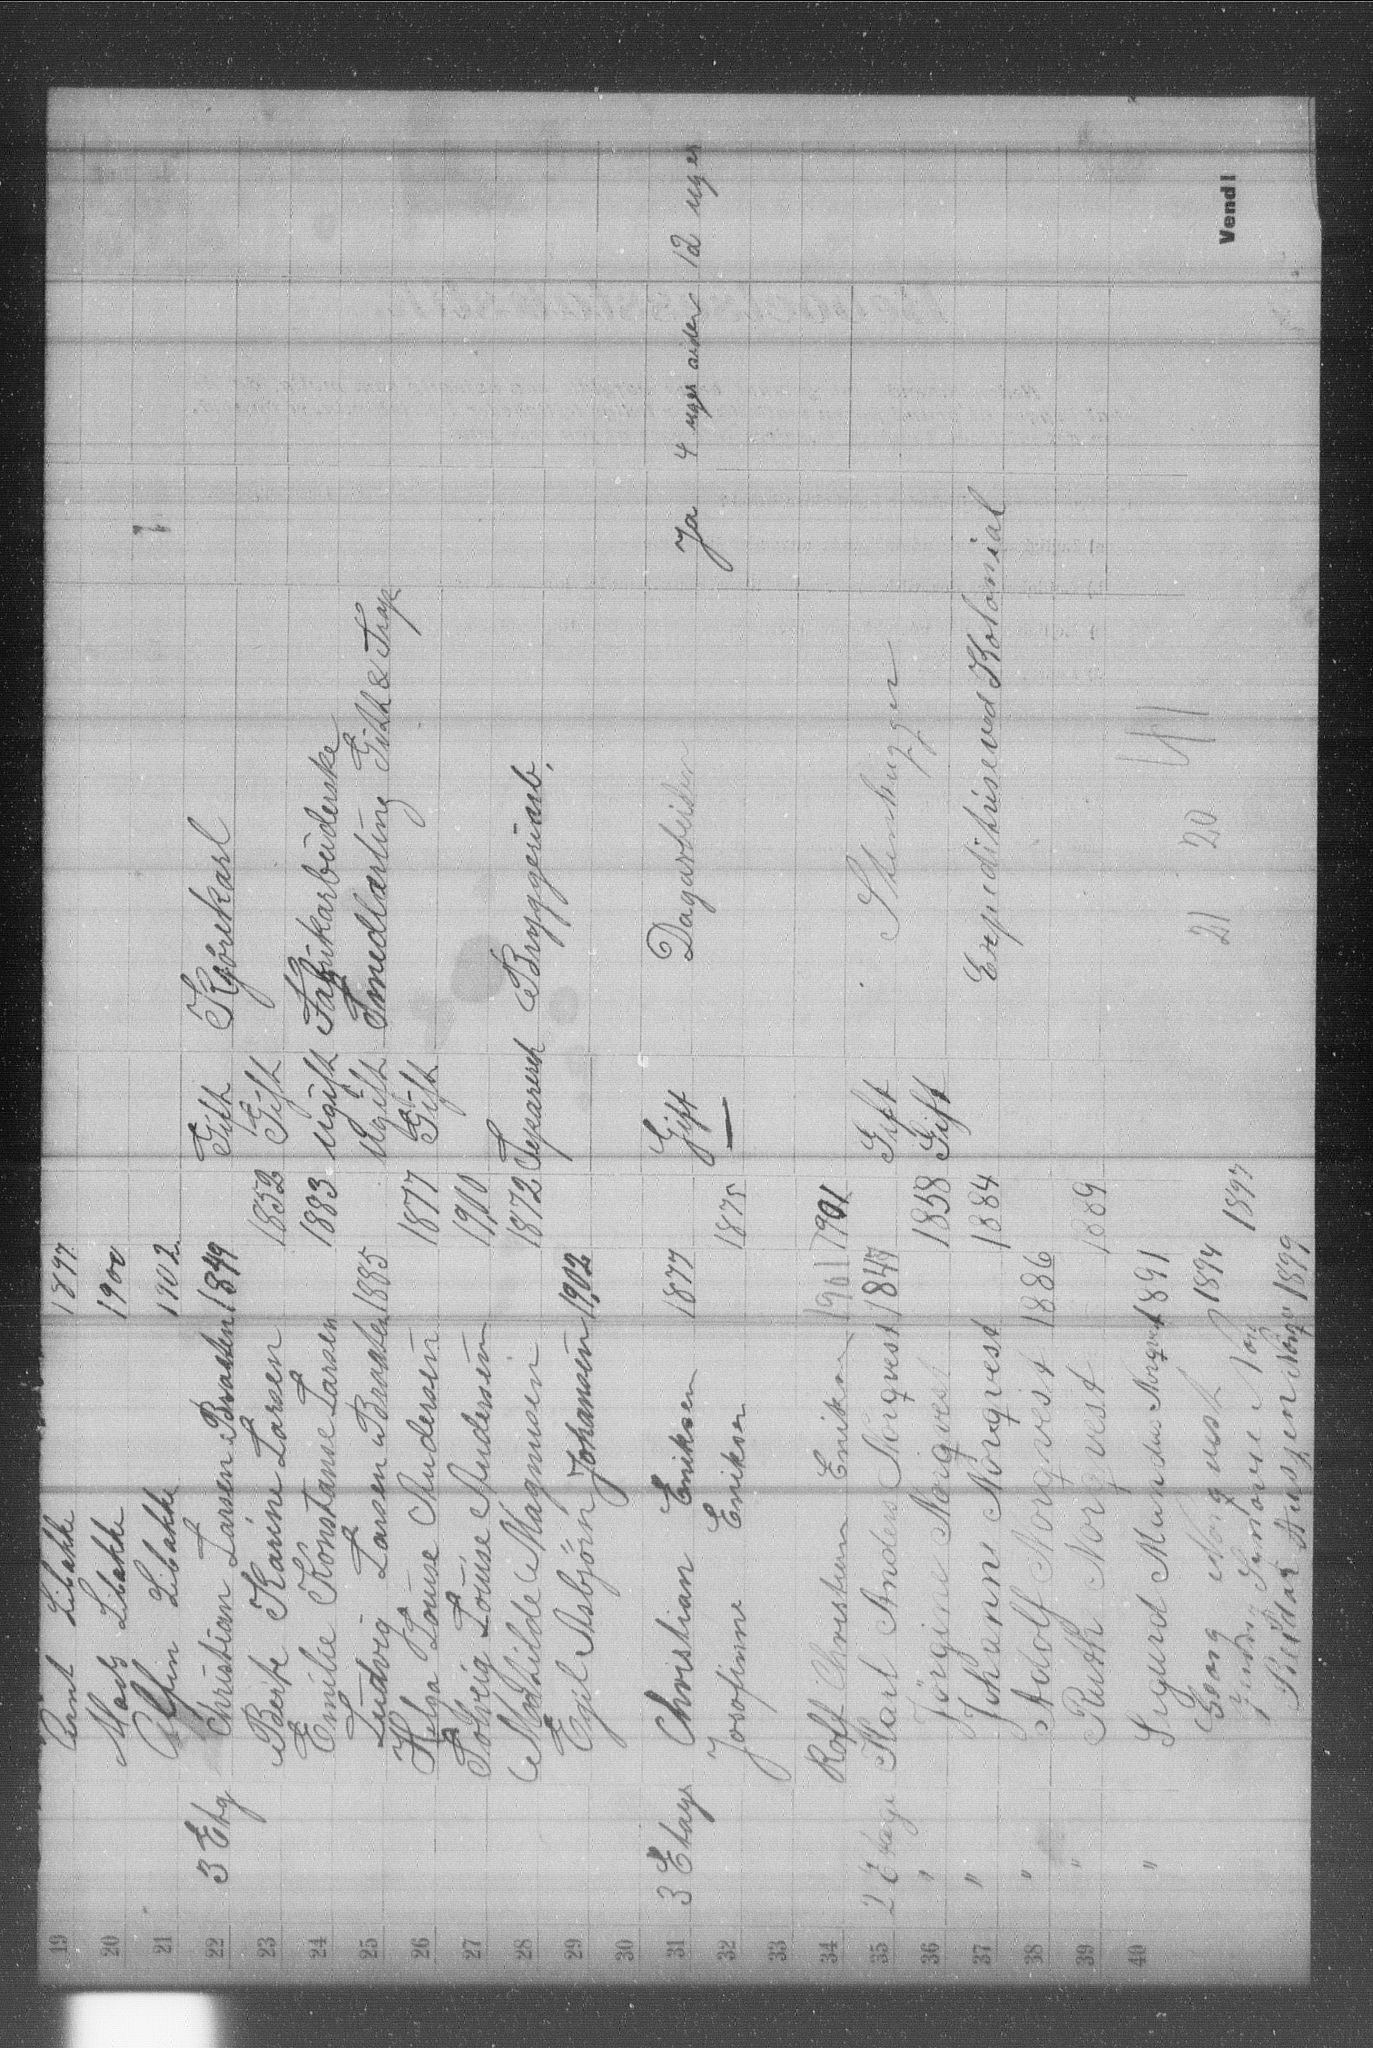 19 Arnt Libakke 1897
20 Marts Libakke 1900
21 Libakke 1902
22 3 Etg Christian Larsen Braaten 1849 Gift Kjörekarl
23 Berte Karine Larsen 1852 Gift
24 Emilie Konstanse Larsen 1883 Ugift Fabrikarbüderske
25 Ludvig Larsen Braaten 1885 Ugift Smedlærling
26 Helga Louise Andersen 1877 Gift
27 Solveig Louise Andersen 1900
28 Mathilde Magnusen 1872 Separeret Bryggeriarb.
29 Egil Asbjörn Johansen 1902
30
31 3 Etage Christian Eriksen 1877 Gift Dagarbeider Ja 4 uger siden 12 uger
32 Josefinne Eriksen 1875 —
33
34 Rolf Christian Eriksen 1901 1901
35 2 Etage Karl Anders Norqvest 1847 Gift Stenhugger
36 " Jörgine Norqvest 1858 Gift
37 " Johanne Norqvest 1884 Expeditrise ved Kolonial
38 " Adolf Norqvist 1886
39 " Ruth Norqvest 1889
40 " Sigurd Mundus Norqvest 1891
Georg Norqvest 1894
1897
1899
21 20
Vend!